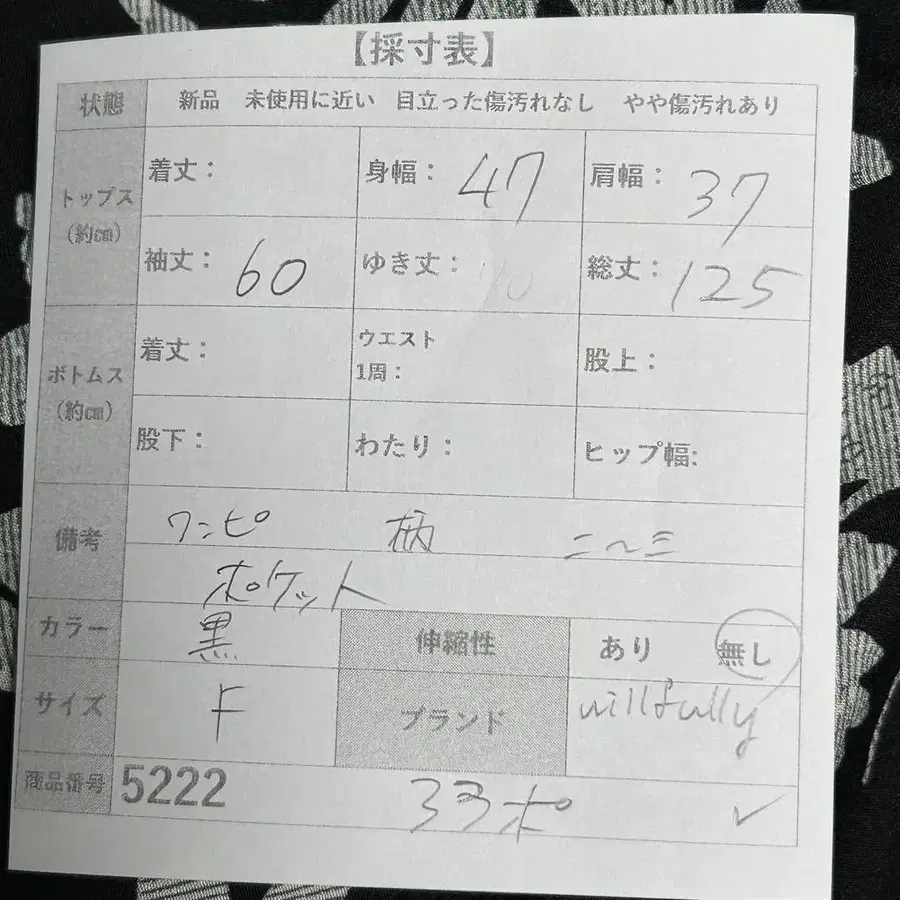 【採寸表】
状態 新品 未使用に近い 目立った傷汚れなし やや傷汚れあり
トップス(約㎝) 着丈: 身幅: 47 肩幅: 37
袖丈: 60 ゆき丈: 総丈: 125
ボトムス(約㎝) 着丈: ウエスト1周: 股上:
股下: わたり: ヒップ幅:
備考 ワンピ 柄
ポケット
カラー 黒 伸縮性 あり 無し
サイズ F ブランド willfully
商品番号 5222 33ポ ✓